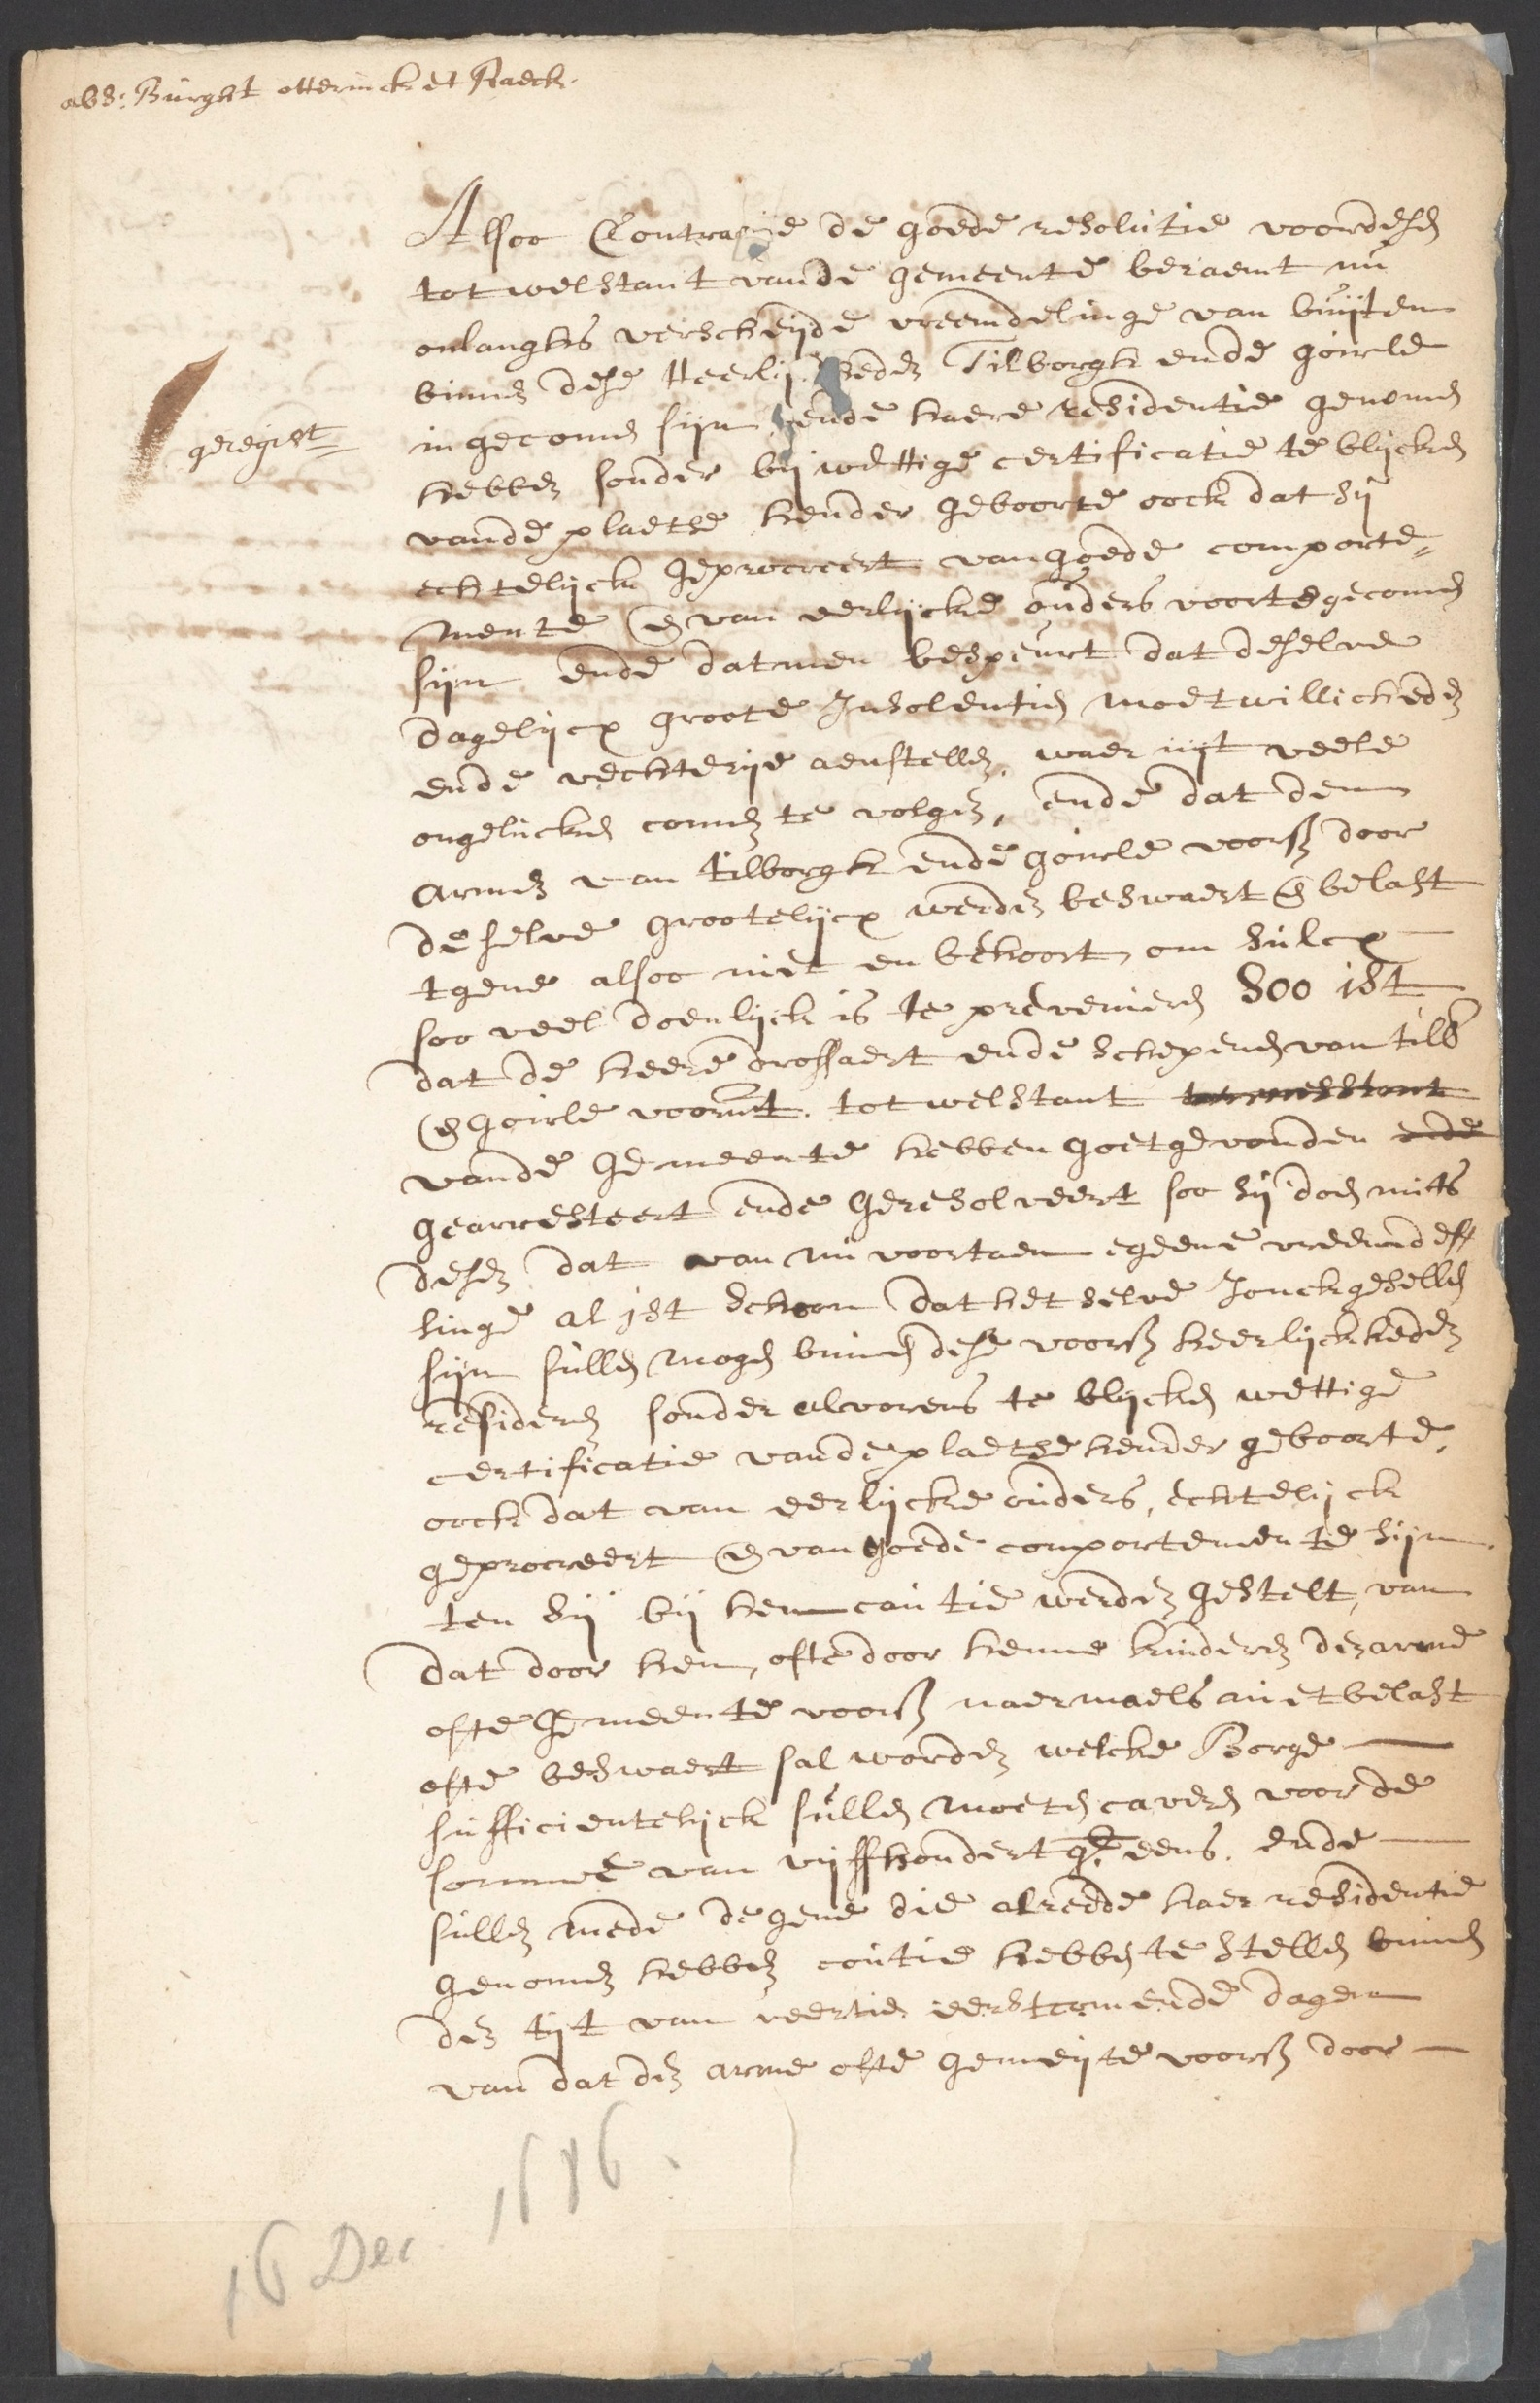 abs: Burght otterinck et Raeck.
Alsoo Contrarie de goede resolutie voordesen
tot welstant vande gemeente beraemt nu
onlanghs verscheijde vreemdelinge van buijten
binnen dese Heerlijckheden Tilborgh ende goirle
ingecomen sijn ende haere residentie genomen
geregist
hebben sonder bij wettige certificatie te blijcken
vande plaetse hender geboorte oock dat sij
echtelijck geprocreert van goede comporte-
mente en van eerlijcke ouders voortsgecomen
sijn ende datmen bespeurt dat deselve
dagelijcx groote Insolentien moetwillicheden
ende vechterije aenstellen, waer uijt veele
ongelucken comen te volgen, ende dat den
armen van tilborgh ende goirle voors door
deselve grootelijcx werden beswaert en belast
tgene alsoo niet en behoort, om sulcx
soo veel doenlijck is te prevenieren Soo ist
dat de heere drossaert ende schepenen van tilb
en goirle voornt. tot welstant tot welstant
vande gemeente hebben goetgevonden ende
gearresteert ende geresolveert soo sij doen mits
desen dat van nu voortaen egeene vreemde
linge al ist schoon dat het selve Jonckgesellen
sijn sullen mogen binnen dese voors heerlijckheden
resideren sonder alvorens te blijcken wettige
certificatie vande plaetse hender geboorte,
oock dat van eerlijcke ouders, echtelijck
geprocreert en van goede comportemente sijn
ten sij bij hem cautie werden gestelt, van
dat door hem, ofte door henne kinderen den arme
ofte gemeente voors naermaels niet belast
ofte beswaert sal worden welcke Borge
sufficientelijck sullen moeten caveren voor de
somme van vijffhondert gl. eens. ende
sullen mede degene die alreede haer residentie
genomen hebben coutie hebben te stellen binnen
den tijt van veertien eerstcomende dagen
van dat den arme ofte gemeijnte voors door
16 Dec 1686.